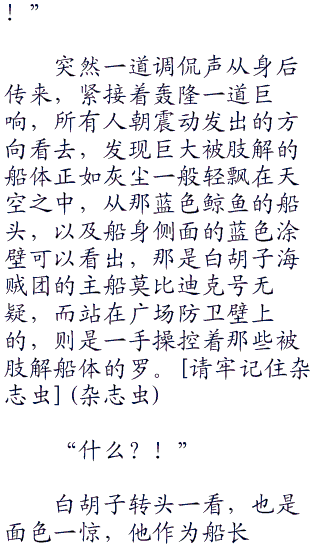 ！”
突然一道调侃声从身后
传来，紧接着轰隆一道巨
响，所有人朝震动发出的方
向看去，发现巨大被肢解的
船体正如灰尘一般轻飘在天
空之中，从那蓝色鲸鱼的船
头，以及船身侧面的蓝色涂
壁可以看出，那是白胡子海
贼团的主船莫比迪克号无
疑，而站在广场防卫壁上
的，则是一手操控着那些被
肢解船体的罗。[请牢记住杂
志虫]（杂志虫）
“什么？！”
白胡子转头一看，也是
面色一惊，他作为船长